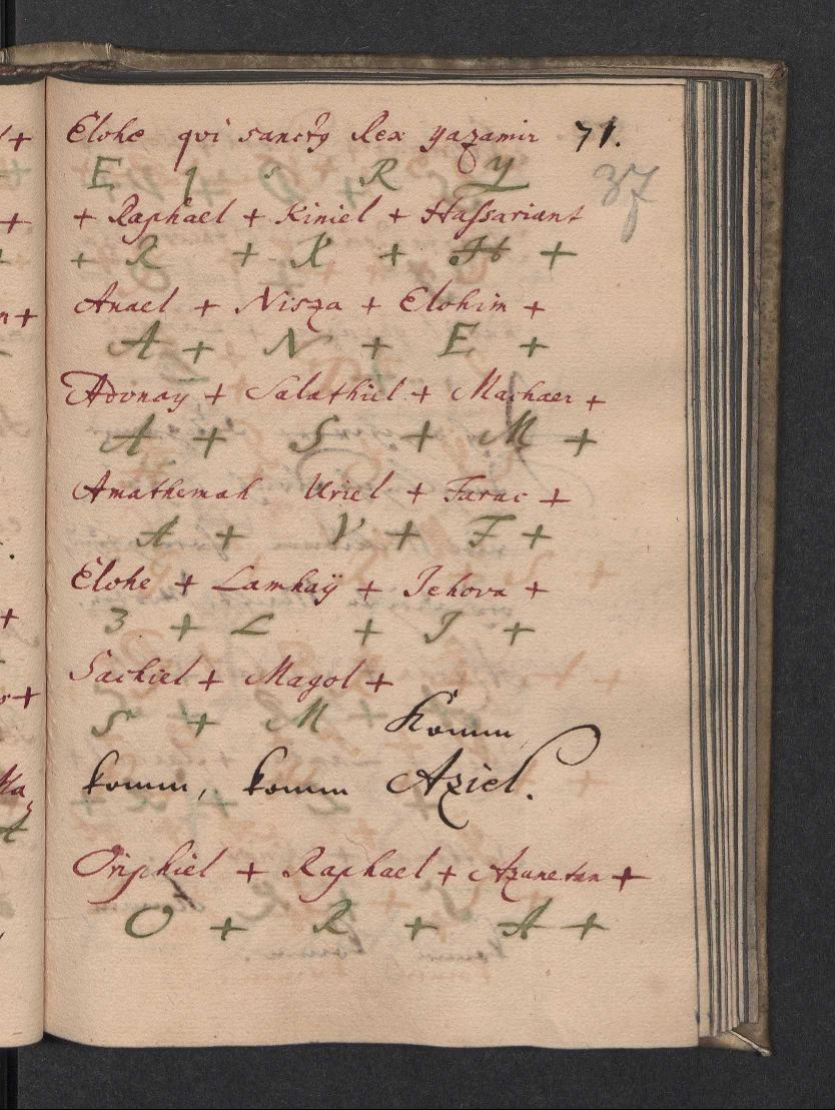 Elohe qvi sanctq Rex yazamir 71.
E q s R Y
37
+ Raphael + Kiniel + Hassariant
+ R + K + H +
Anael + Nisza + Elohim +
A + N + E +
Adonay + Salathiel + Machaer +
A + S + M +
Amathemah Uriel + Farac +
A + V + F +
Elohe + Lamkaÿ + Jehova +
3 + L + J +
Sachiel + Magol +
S + M Komm
komm, komm Aziel.
Oriphiel + Raphael + Azunetan +
O + R + A +